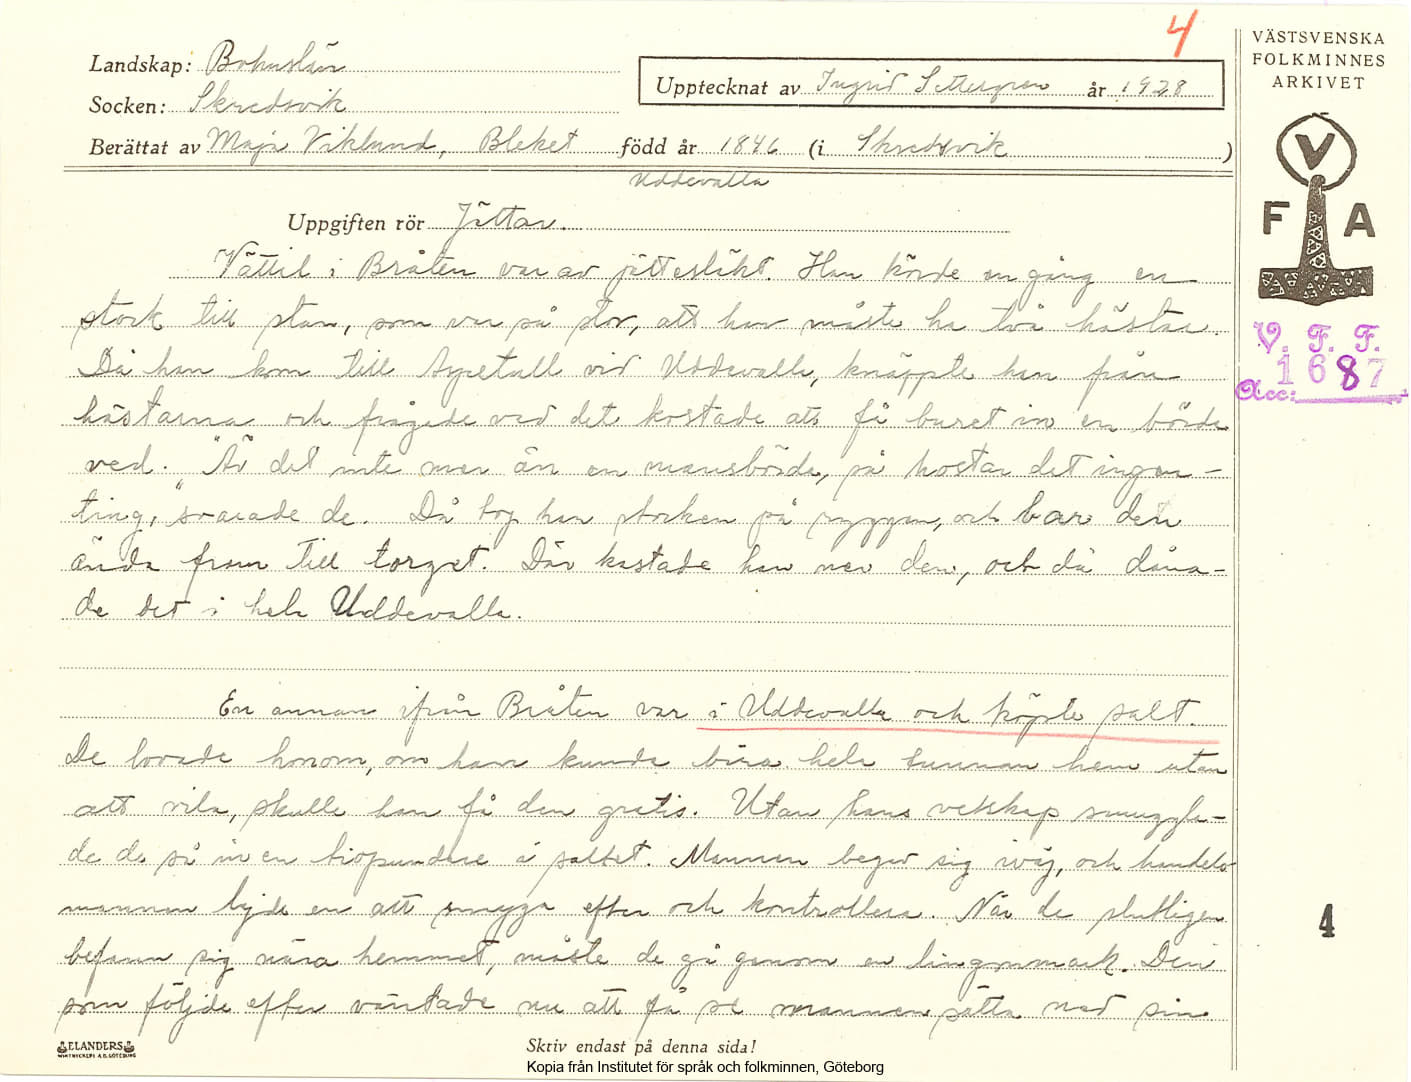 4
VÄSTSVENSKA
FOLKMINNES
ARKIVET
Landskap: Bohuslän
Socken: Skredsvik
Upptecknat av Ingrid Settergren år 1928
Berättat av Maja Viklund, Bleket född år 1846 (i Skredsvik)
Uddevalla
V
F A
Uppgiften rör Jättar.
Vättil i Bråten var av jättesläkt. Han körde en gång en
stock till stan, som var så stor, att han måste ha två hästar.
Då han kom till vid Uddevalla, knäppte han från
hästarna och frågade vad det kostade att få buret in en börda
ved. "Är det inte mer än en mansbörda, så kostar det ingen-
ting," svarade de. Då tog han stocken på ryggen, och bar den
ända fram till torget. Där kastade han ner den, och då dåna-
de det i hela Uddevalla.
V. F. F.
1687
Acc:
En annan ifrån Bråten var i Uddevalla och köpte salt.
De lovade honom, om han kunde bära hela tunnan hem utan
att vila, skulle han få den gratis. Utan hans vetskap smuggla-
de de så in en tiopundare i saltet. Mannen begav sig iväg, och handels-
mannen lejde en att smyga efter och kontrollera. När de slutligen
befann sig nära hemmet, måste de gå genom en lingonmark. Den
som följde efter väntade nu att få se mannen sätta ned sin
4
ELANDERS
Skriv endast på denna sida!
Kopia från Institutet för språk och folkminnen, Göteborg